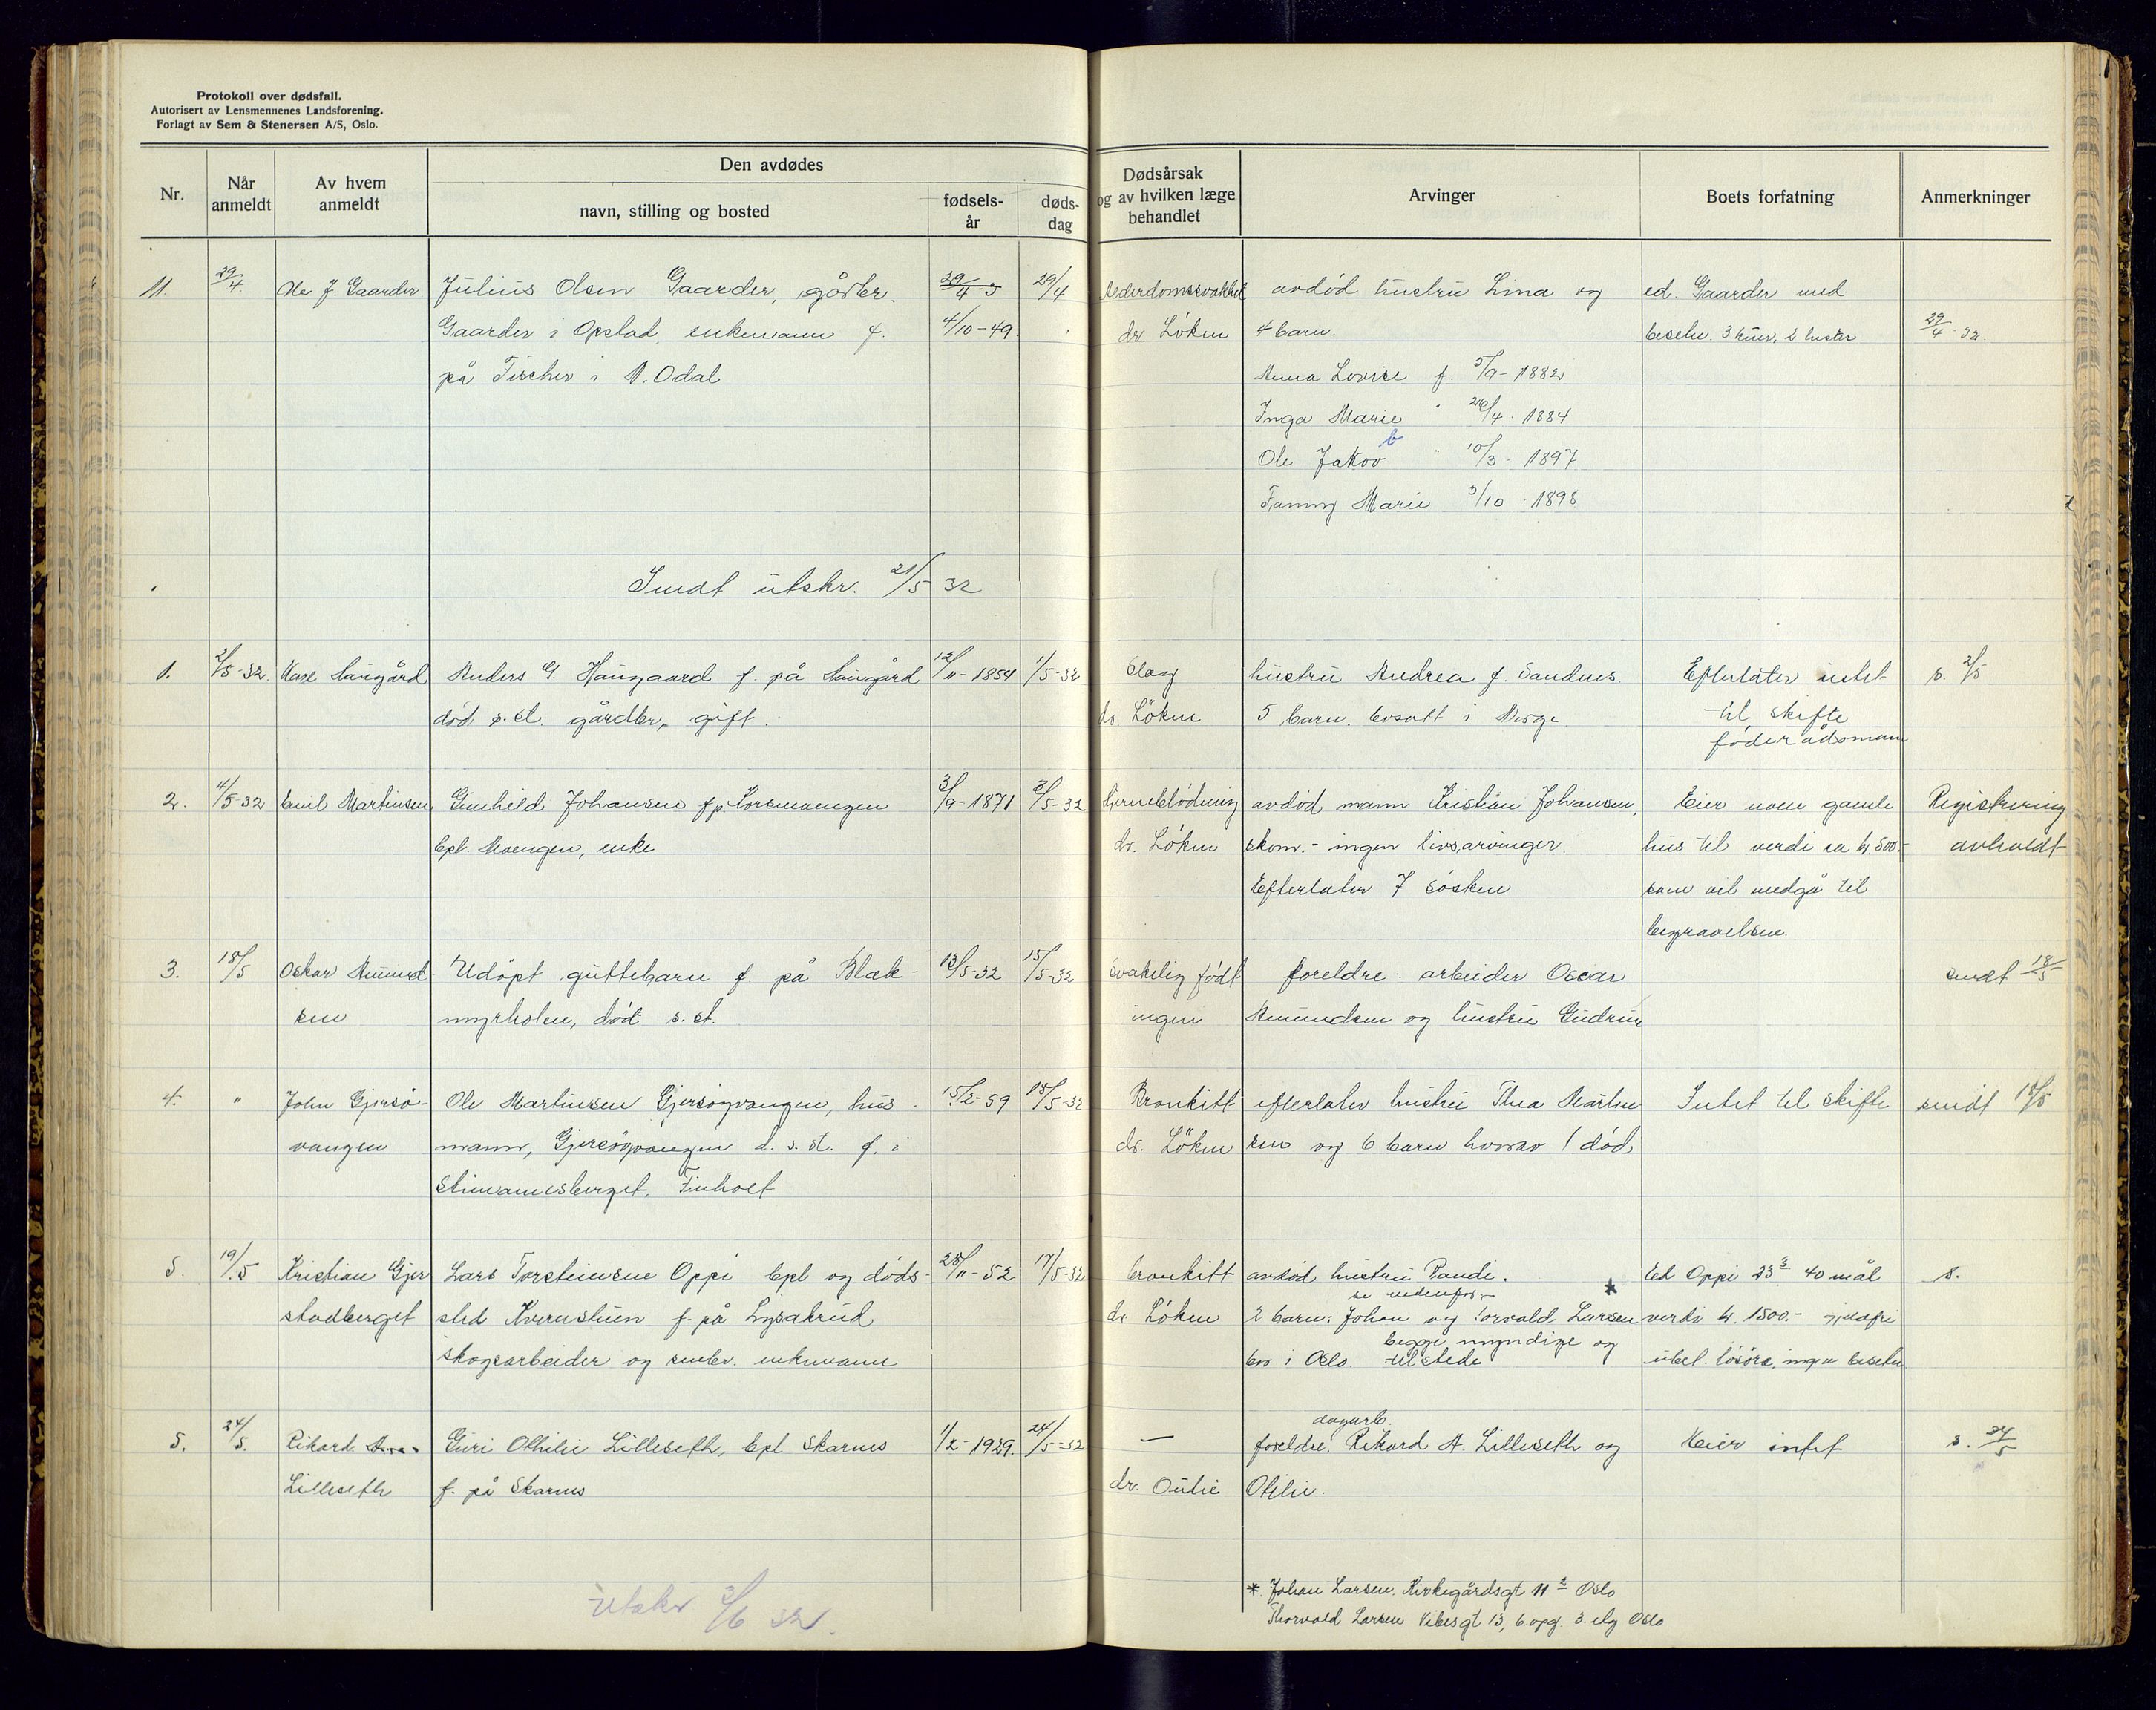 Protokoll over dødsfall.
Autorisert av Lensmennenes Landsforening.
Forlagt av Sem & Stenersen A/S, Oslo.
Nr.
Når anmeldt
Av hvem anmeldt
Den avdødes
navn, stilling og bosted
fødsels-
år
døds-
dag
Dødsårsak
og av hvilken læge
behandlet
Arvinger
Boets forfatning
Anmerkninger
11. 29/4. Ole J. Gaarder Julius Olsen Gaarder, gårdbr. 29/4 29/4 alderdomssvakhet avdød hustru Lina og ed. Gaarder med
Gaarder i Opstad, enkemann f. 4/10-49. dr. Löken 4 barn. besetn. 3 kuer, 2 hester 29/4-32.
på Fischer i N. Odal Anna Lovise f. 5/9-1882
Inga Marie " 26/4-1884
Ole Jakov b " 10/3-1897
Fanny Marie 3/10-1898
Sendt utskr. 21/5 32
1. 2/5-32. Kare Haugård Anders G. Haugaard f. på Haugård 12/11-1854 1/5-32 Slag hustru Andrea f. Sandnes. Efterlater intet s. 2/5
død s. st. gårdbr., gift. dr. Löken 5 barn. bosatt i Norge til skifte
föderådsmann
2. 4/5-32 Emil Martinsen Gunhild Johansen f. p. Korsmoengen 3/9-1871 2/5-32 hjerneblödning avdød mann Kristian Johansen, Eier noen gamle Registrering
bpl. Moengen, enke dr. Löken skom.- ingen livsarvinger. hus til verdi ca kr. 500.- avholdt
Efterlater 7 søsken som vil medgå til
begravelsen.
3. 18/5 Oskar Amund- Udöpt guttebarn f. på Blak- 13/5-32 15/5-32 svakelig födt foreldre: arbeider Oscar sendt 18/5
sen myrholen, död s. st. ingen Amundsen og hustru Gudrun
4. " John Gjersö- Ole Martinsen Gjersöyvangen, hus- 15/2-59 18/5-32 Bronkitt efterlater hustru Thea Martin Intet til skifte sendt 18/5
vangen mann, Gjersöyvangen d. s. st. f. i dr. Löken sen og 6 barn hvorav 1 död
Stimannsberget, Finholt
5. 19/5 Kristian Gjer Lars Torsteinsen Oppi bpl og döds- 28/11-52 17/5-32 bronkitt avdöd hustru Randi. * Ed Oppi 23 3 40 mål s.
se nedenfor
stadberget sted Kvernstuen f. på Lysakrud dr Löken 2 barn: Johan og Torvald Larsen verdi kr. 1500.- gjeldfri
begge myndige og
skogsarbeider og enkemann bor i Oslo. tilstede ubet. lösöre, ingen besetn
5. 24/5. Rikard Lilleseth Guri Othilie Lilleseth, bpl Skarnes 1/2-1929. 24/5-32 — foreldre. Rikard A. Lilleseth og Neier intet s. 24/5
dagarb.
f. på Skarnes dr. Oulie Otilie.
Utskr 2/6 32.
*. Johan Larsen. Kirkegårdsgt 11 2 Oslo
Thorvald Larsen Vibesgt 13, b. opg. 3. etg Oslo